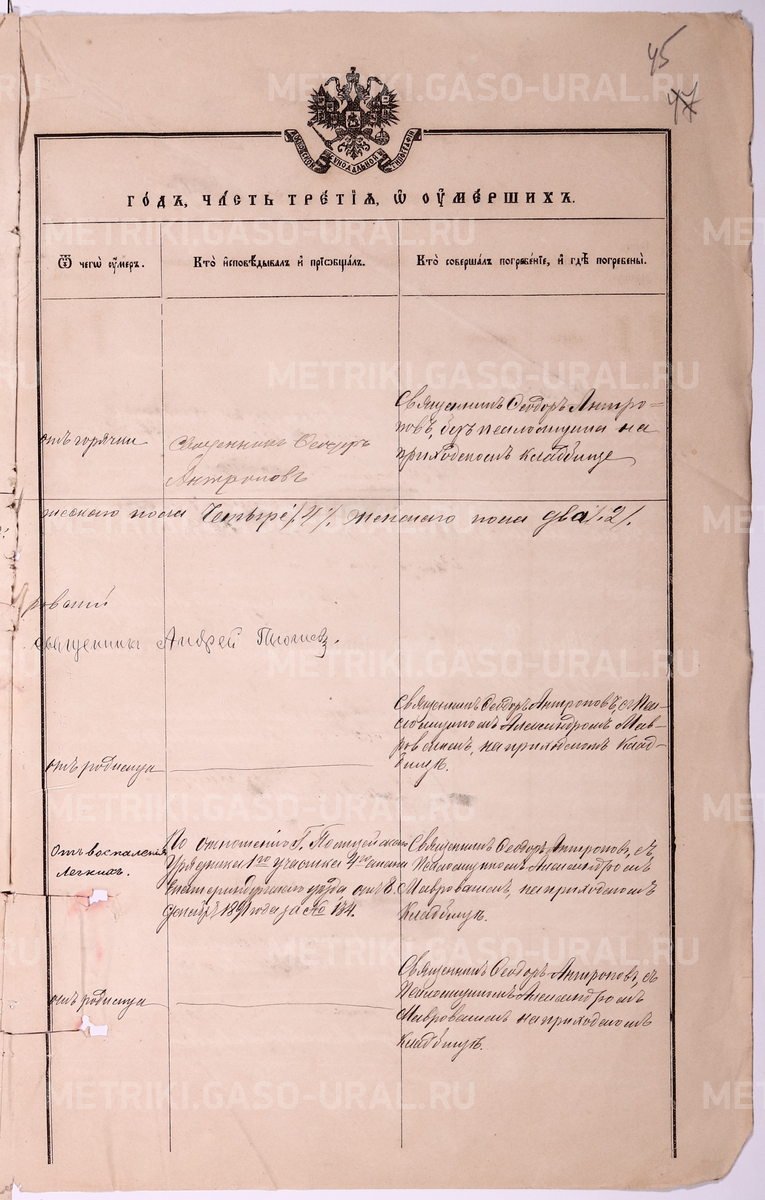 45
47
ГОДЪ, ЧАСТЬ ТРЕТІЯ, Ѡ ОУМЕРШИХЪ.
Ѿ чегѡ оумеръ.
Кто исповѣдывалъ и пріѡбщалъ.
Кто совершалъ погребеніе, и гдѣ погребены.
отъ горячки
Священникъ Ѳеодоръ
Антроповъ
Священникъ Ѳеодоръ Антро-
повъ, безъ псаломщика на
приходскомъ кладбище
жескаго пола Четыре /.4/. женскаго пола два /.2/.
Священникъ Андрей
отъ родимца
Священникъ Ѳеодоръ Антроповъ, съ Пса-
ломщикомъ Александромъ Мав-
на приходскомъ Клад-
бищѣ.
Отъ воспаленія
Легкихъ.
По отношенію Г. Полицейскаго
Урядника 1го участка 4го стана
Екатеринбургскаго уѣзда отъ 8
Декабря 1891 года за № 134.
Священникъ Ѳеодоръ Антроповъ, съ
Псаломщикомъ Александромъ
на приходскомъ
Кладбищѣ.
отъ родимца
Священникъ Ѳеодоръ Антроповъ, съ
Псаломщикомъ Александромъ
на приходскомъ
Кладбищѣ.
METRIKI.GASO-URAL.RU